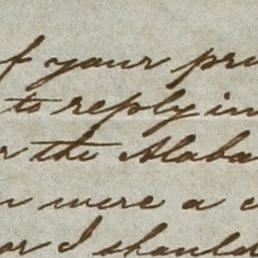 f your pri
to reply in
r the Alaba
n were a c
or I should